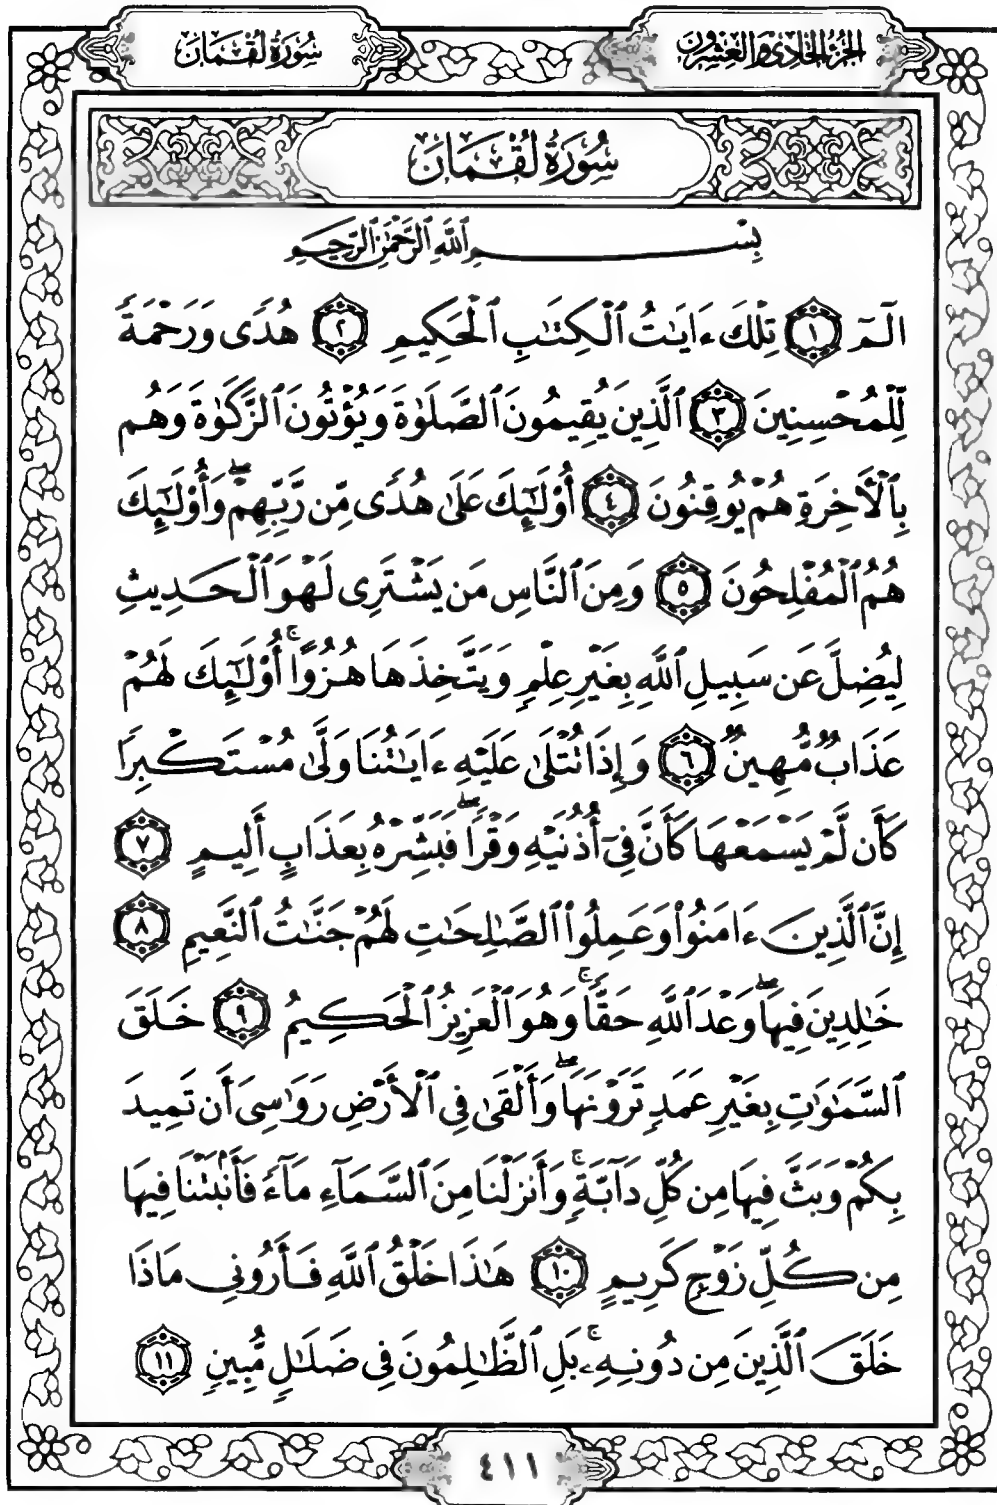 الجُزْءُ الحَادِي وَالعِشْرُونَ
سُورَةُ لُقْمَان
سُورَةُ لُقْمَانَ
بِسْمِ ٱللَّهِ ٱلرَّحْمَٰنِ ٱلرَّحِيمِ
الٓمٓ ١ تِلْكَ ءَايَٰتُ ٱلْكِتَٰبِ ٱلْحَكِيمِ ٢ هُدًى وَرَحْمَةً
لِّلْمُحْسِنِينَ ٣ ٱلَّذِينَ يُقِيمُونَ ٱلصَّلَوٰةَ وَيُؤْتُونَ ٱلزَّكَوٰةَ وَهُم
بِٱلْأَخِرَةِ هُمْ يُوقِنُونَ ٤ أُوْلَٰٓئِكَ عَلَىٰ هُدًى مِّن رَّبِّهِمْۖ وَأُوْلَٰٓئِكَ
هُمُ ٱلْمُفْلِحُونَ ٥ وَمِنَ ٱلنَّاسِ مَن يَشْتَرِى لَهْوَ ٱلْحَدِيثِ
لِيُضِلَّ عَن سَبِيلِ ٱللَّهِ بِغَيْرِ عِلْمٍ وَيَتَّخِذَهَا هُزُوًاۚ أُوْلَٰٓئِكَ لَهُمْ
عَذَابٌ مُّهِينٌ ٦ وَإِذَا تُتْلَىٰ عَلَيْهِ ءَايَٰتُنَا وَلَّىٰ مُسْتَكْبِرًا
كَأَن لَّمْ يَسْمَعْهَا كَأَنَّ فِىٓ أُذُنَيْهِ وَقْرًاۖ فَبَشِّرْهُ بِعَذَابٍ أَلِيمٍ ٧
إِنَّ ٱلَّذِينَ ءَامَنُواْ وَعَمِلُواْ ٱلصَّٰلِحَٰتِ لَهُمْ جَنَّٰتُ ٱلنَّعِيمِ ٨
خَٰلِدِينَ فِيهَاۖ وَعْدَ ٱللَّهِ حَقًّاۚ وَهُوَ ٱلْعَزِيزُ ٱلْحَكِيمُ ٩ خَلَقَ
ٱلسَّمَٰوَٰتِ بِغَيْرِ عَمَدٍ تَرَوْنَهَاۖ وَأَلْقَىٰ فِى ٱلْأَرْضِ رَوَٰسِىَ أَن تَمِيدَ
بِكُمْ وَبَثَّ فِيهَا مِن كُلِّ دَآبَّةٍۚ وَأَنزَلْنَا مِنَ ٱلسَّمَآءِ مَآءً فَأَنۢبَتْنَا فِيهَا
مِن كُلِّ زَوْجٍ كَرِيمٍ ١٠ هَٰذَا خَلْقُ ٱللَّهِ فَأَرُونِى مَاذَا
خَلَقَ ٱلَّذِينَ مِن دُونِهِۦۚ بَلِ ٱلظَّٰلِمُونَ فِى ضَلَٰلٍ مُّبِينٍ ١١
٤١١